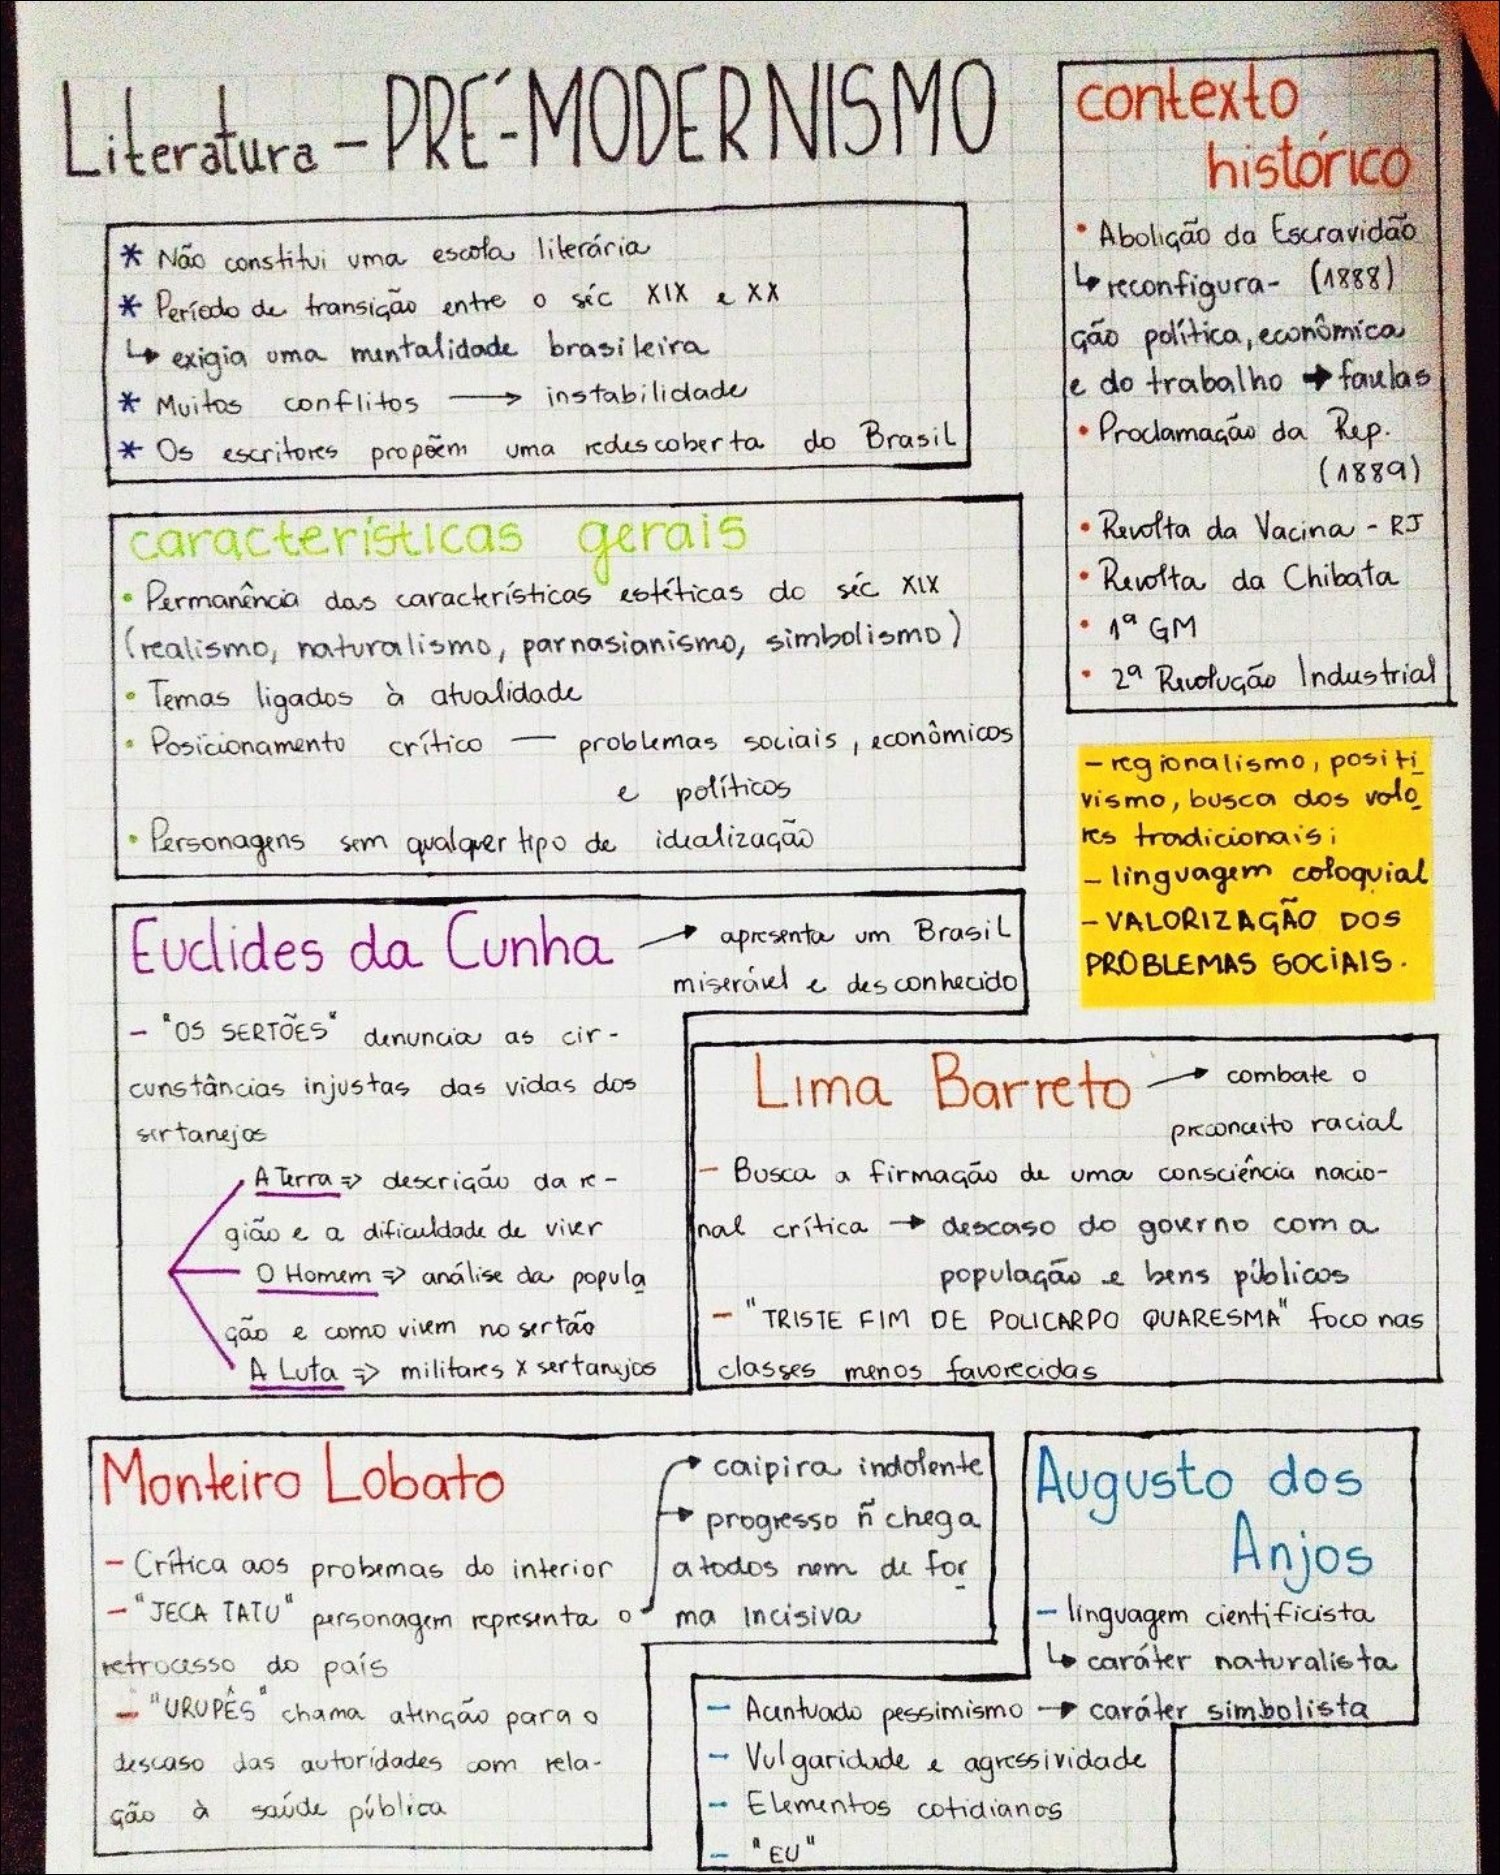 Literatura - PRÉ-MODERNISMO
* Não constitui uma escola literária
* Período de transição entre o séc XIX e XX
↳ exigia uma mentalidade brasileira
* Muitos conflitos → instabilidade
* Os escritores propõem uma redescoberta do Brasil
contexto
histórico
• Abolição da Escravidão
↳ reconfigura- (1888)
ção política, econômica
e do trabalho → favelas
• Proclamação da Rep.
(1889)
• Revolta da Vacina - RJ
• Revolta da Chibata
• 1ª GM
• 2ª Revolução Industrial
características gerais
• Permanência das características estéticas do séc XIX
(realismo, naturalismo, parnasianismo, simbolismo)
• Temas ligados à atualidade
• Posicionamento crítico — problemas sociais, econômicos
e políticos
• Personagens sem qualquer tipo de idealização
- regionalismo, positi
vismo, busca dos valo
res tradicionais;
- linguagem coloquial
- VALORIZAÇÃO DOS
PROBLEMAS SOCIAIS.
Euclides da Cunha → apresenta um Brasil
miserável e desconhecido
- "OS SERTÕES" denuncia as cir-
cunstâncias injustas das vidas dos
sertanejos
A Terra => descrição da re-
gião e a dificuldade de viver
O Homem => análise da popula
ção e como vivem no sertão
A Luta => militares x sertanejos
Lima Barreto → combate o
preconceito racial
- Busca a firmação de uma consciência nacio-
nal crítica → descaso do governo com a
população e bens públicos
- "TRISTE FIM DE POLICARPO QUARESMA" foco nas
classes menos favorecidas
Monteiro Lobato
- Crítica aos probemas do interior
- "JECA TATU" personagem representa o
retrocesso do país
- "URUPÊS" chama atenção para o
descaso das autoridades com rela-
ção à saúde pública
→ caipira indolente
→ progresso ñ chega
a todos nem de for
ma incisiva
Augusto dos
Anjos
- linguagem cientificista
↳ caráter naturalista
- Acentuado pessimismo → caráter simbolista
- Vulgaridade e agressividade
- Elementos cotidianos
- "EU"